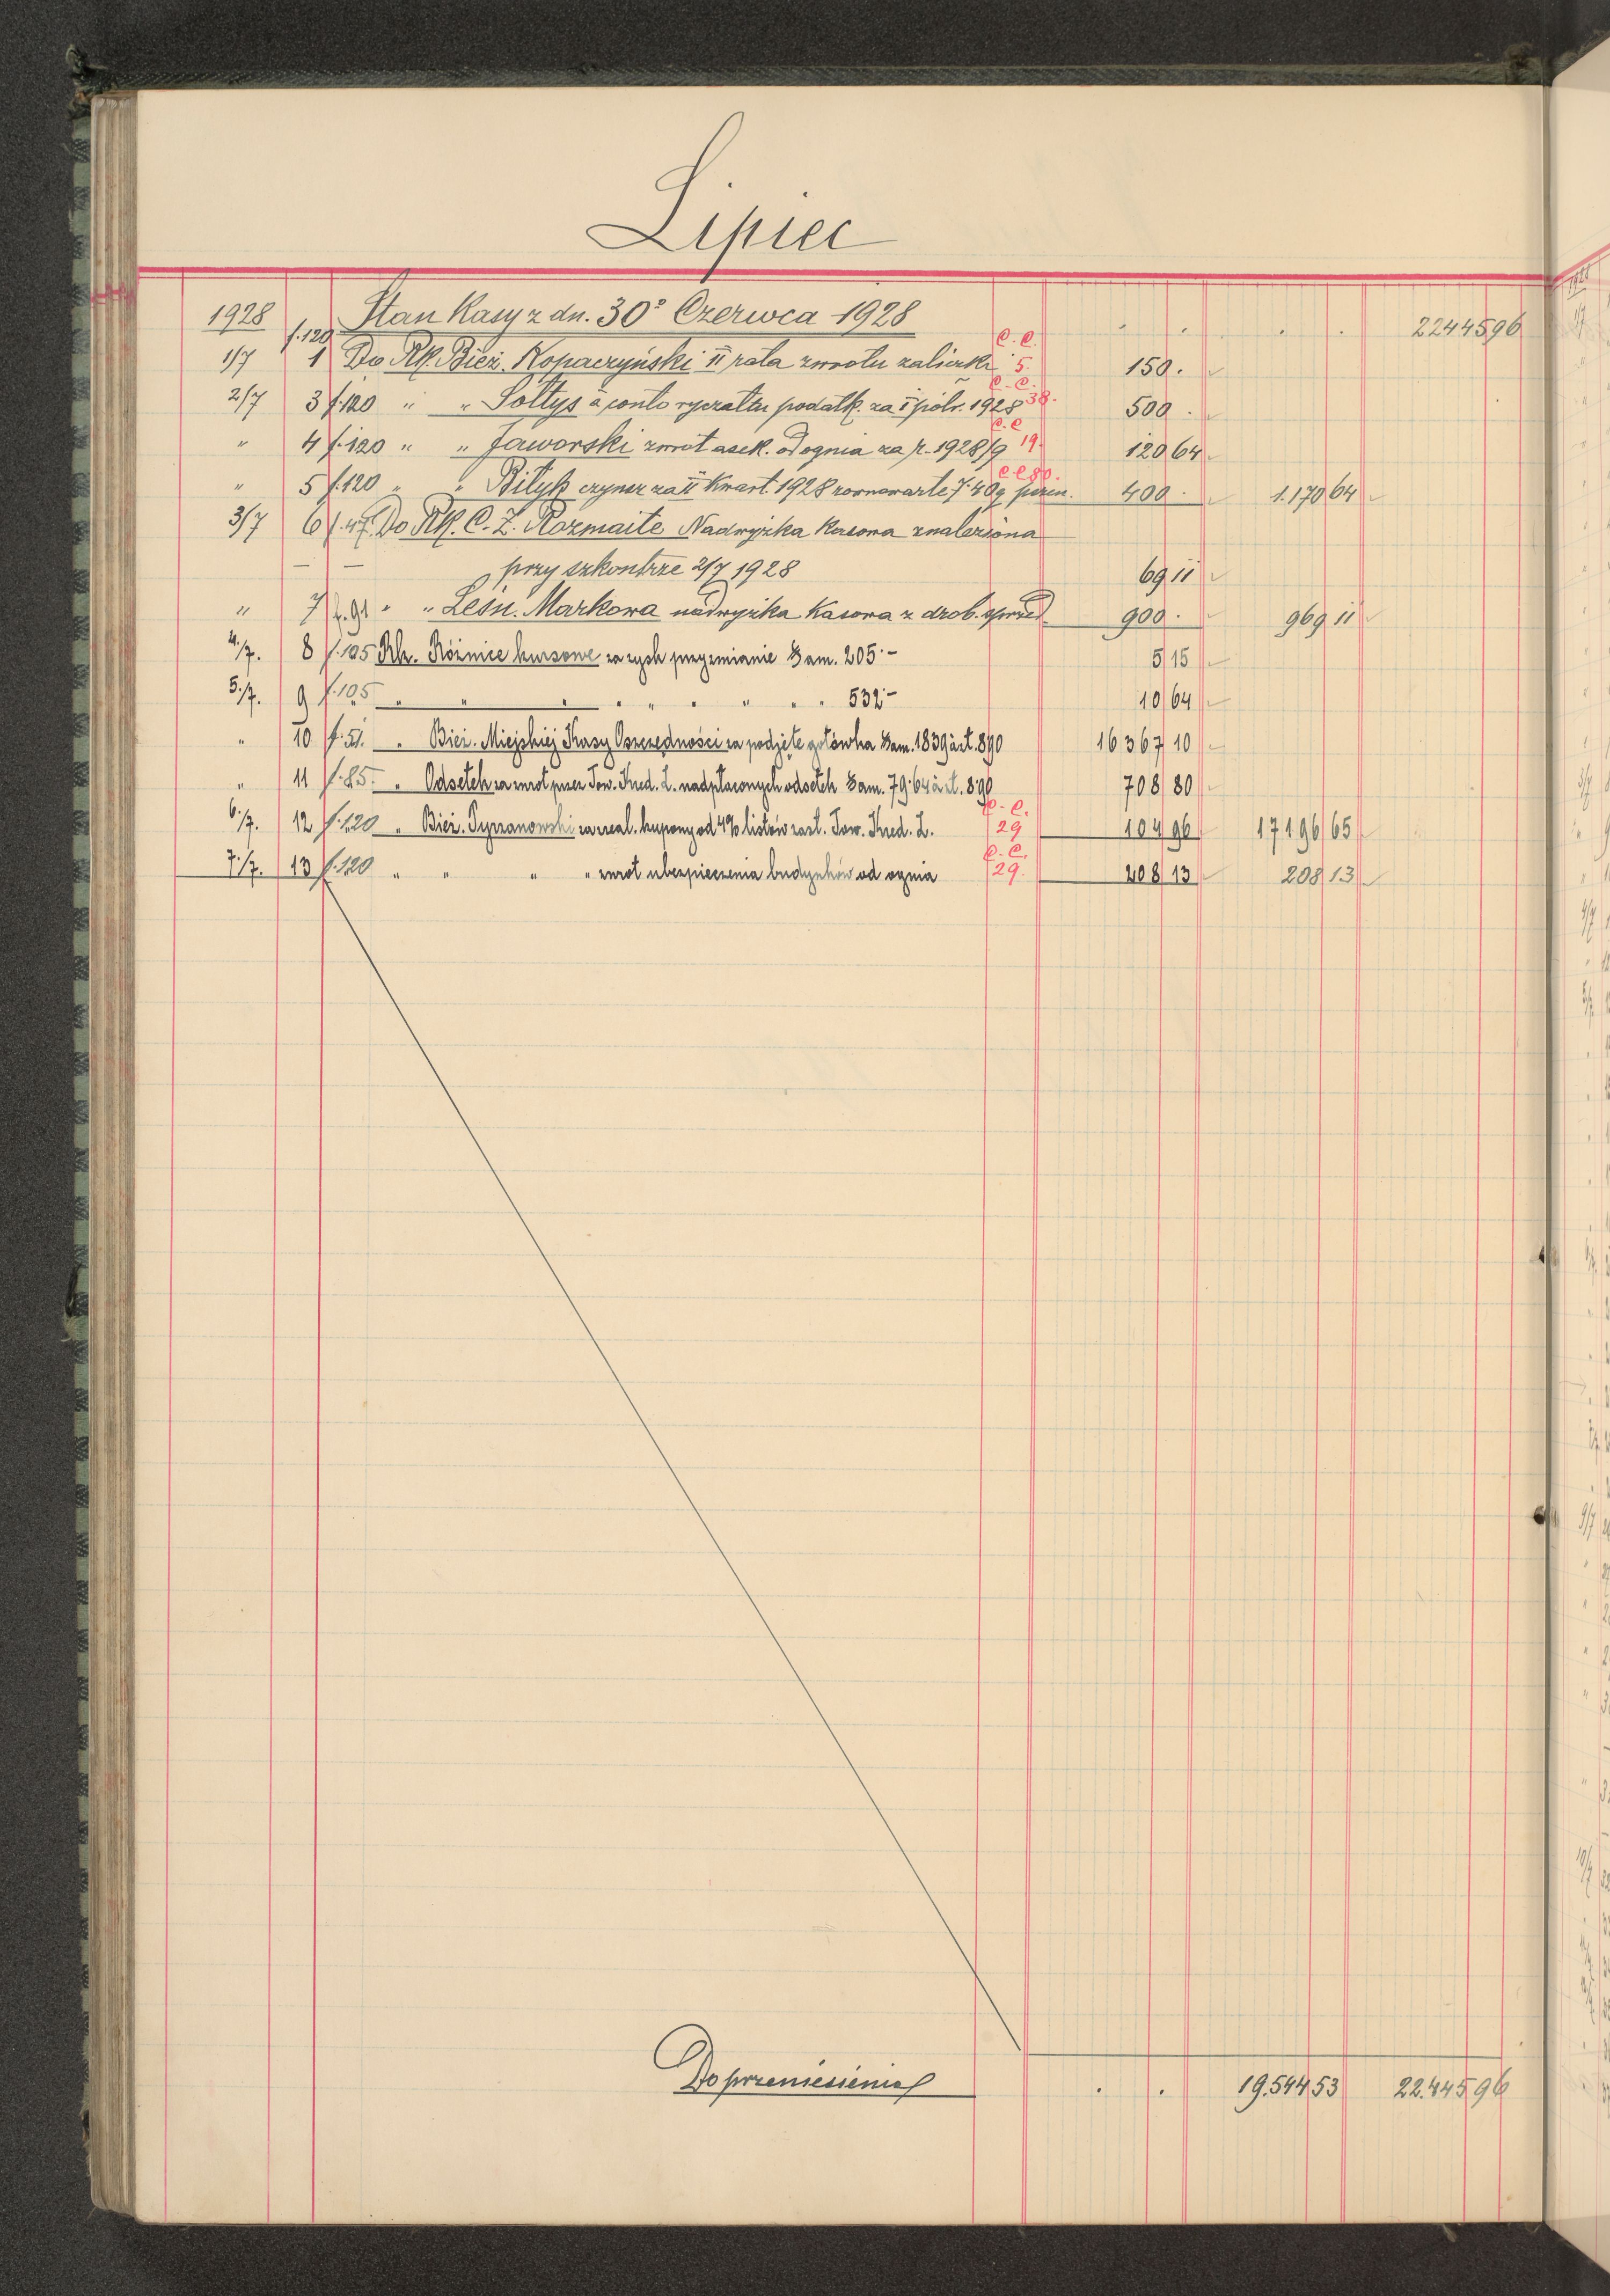 Lipiec
1928 Stan Kasy z dn. 30º Czerwca 1928 . . . . 22445 96
1/7 1 f. 120 Do Rk. Bież. Kopaczyński II rata zwrotu zaliczki C.C. 5. 150 .
2/7 3 f. 120 " " Sołtys à conto ryczałtu podatk. za I półr. 1928 C.C. 38. 500 .
" 4 f. 120 " " Jaworski zwrot asek. od ognia za r. 1928/9 C.C. 19. 120 64
" 5 f. 120 " " Bilyk czynsz za II Kwart. 1928 7·40 q pszen. C.C. 80. 400 . 1.170 64
3/7 6 f. 47 Do Rk. C. Z. Rozmaite Nadwyżka Kasowa znaleziona
przy szkontrze 2/7 1928 69 11
" 7 f. 91 " " Leśn. Markowa nadwyżka Kasowa z drob. sprzed. 900 . 969 11
4./7. 8 f. 105 Rk. Różnice kursowe za zysk przy zmianie Dam. 205·- 5 15
5./7. 9 f. 105 " " " " " " " " 532·- 10 64
" 10 f. 51. " Bież. Miejskiej Kasy Oszczędności za podjęte gotówka Dam. 1839 à zł. 8·90 16367 10
" 11 f. 85. " Odsetek za zwrot przez Tow. Kred. Z. nadpłaconych odsetek Dam. 79·64 à zł. 8·90 708 80
6./7. 12 f. 120 " Bież. Tyszanowski za zreal. kupony od 4% listów zast. Tow. Kred. Z. C.C. 29 104 96 17196 65
7./7. 13 f. 120 " " " " zwrot ubezpieczenia budynków od ognia C.C. 29. 208 13 208 13
Do przeniesienia . . 19.544 53 22.445 96